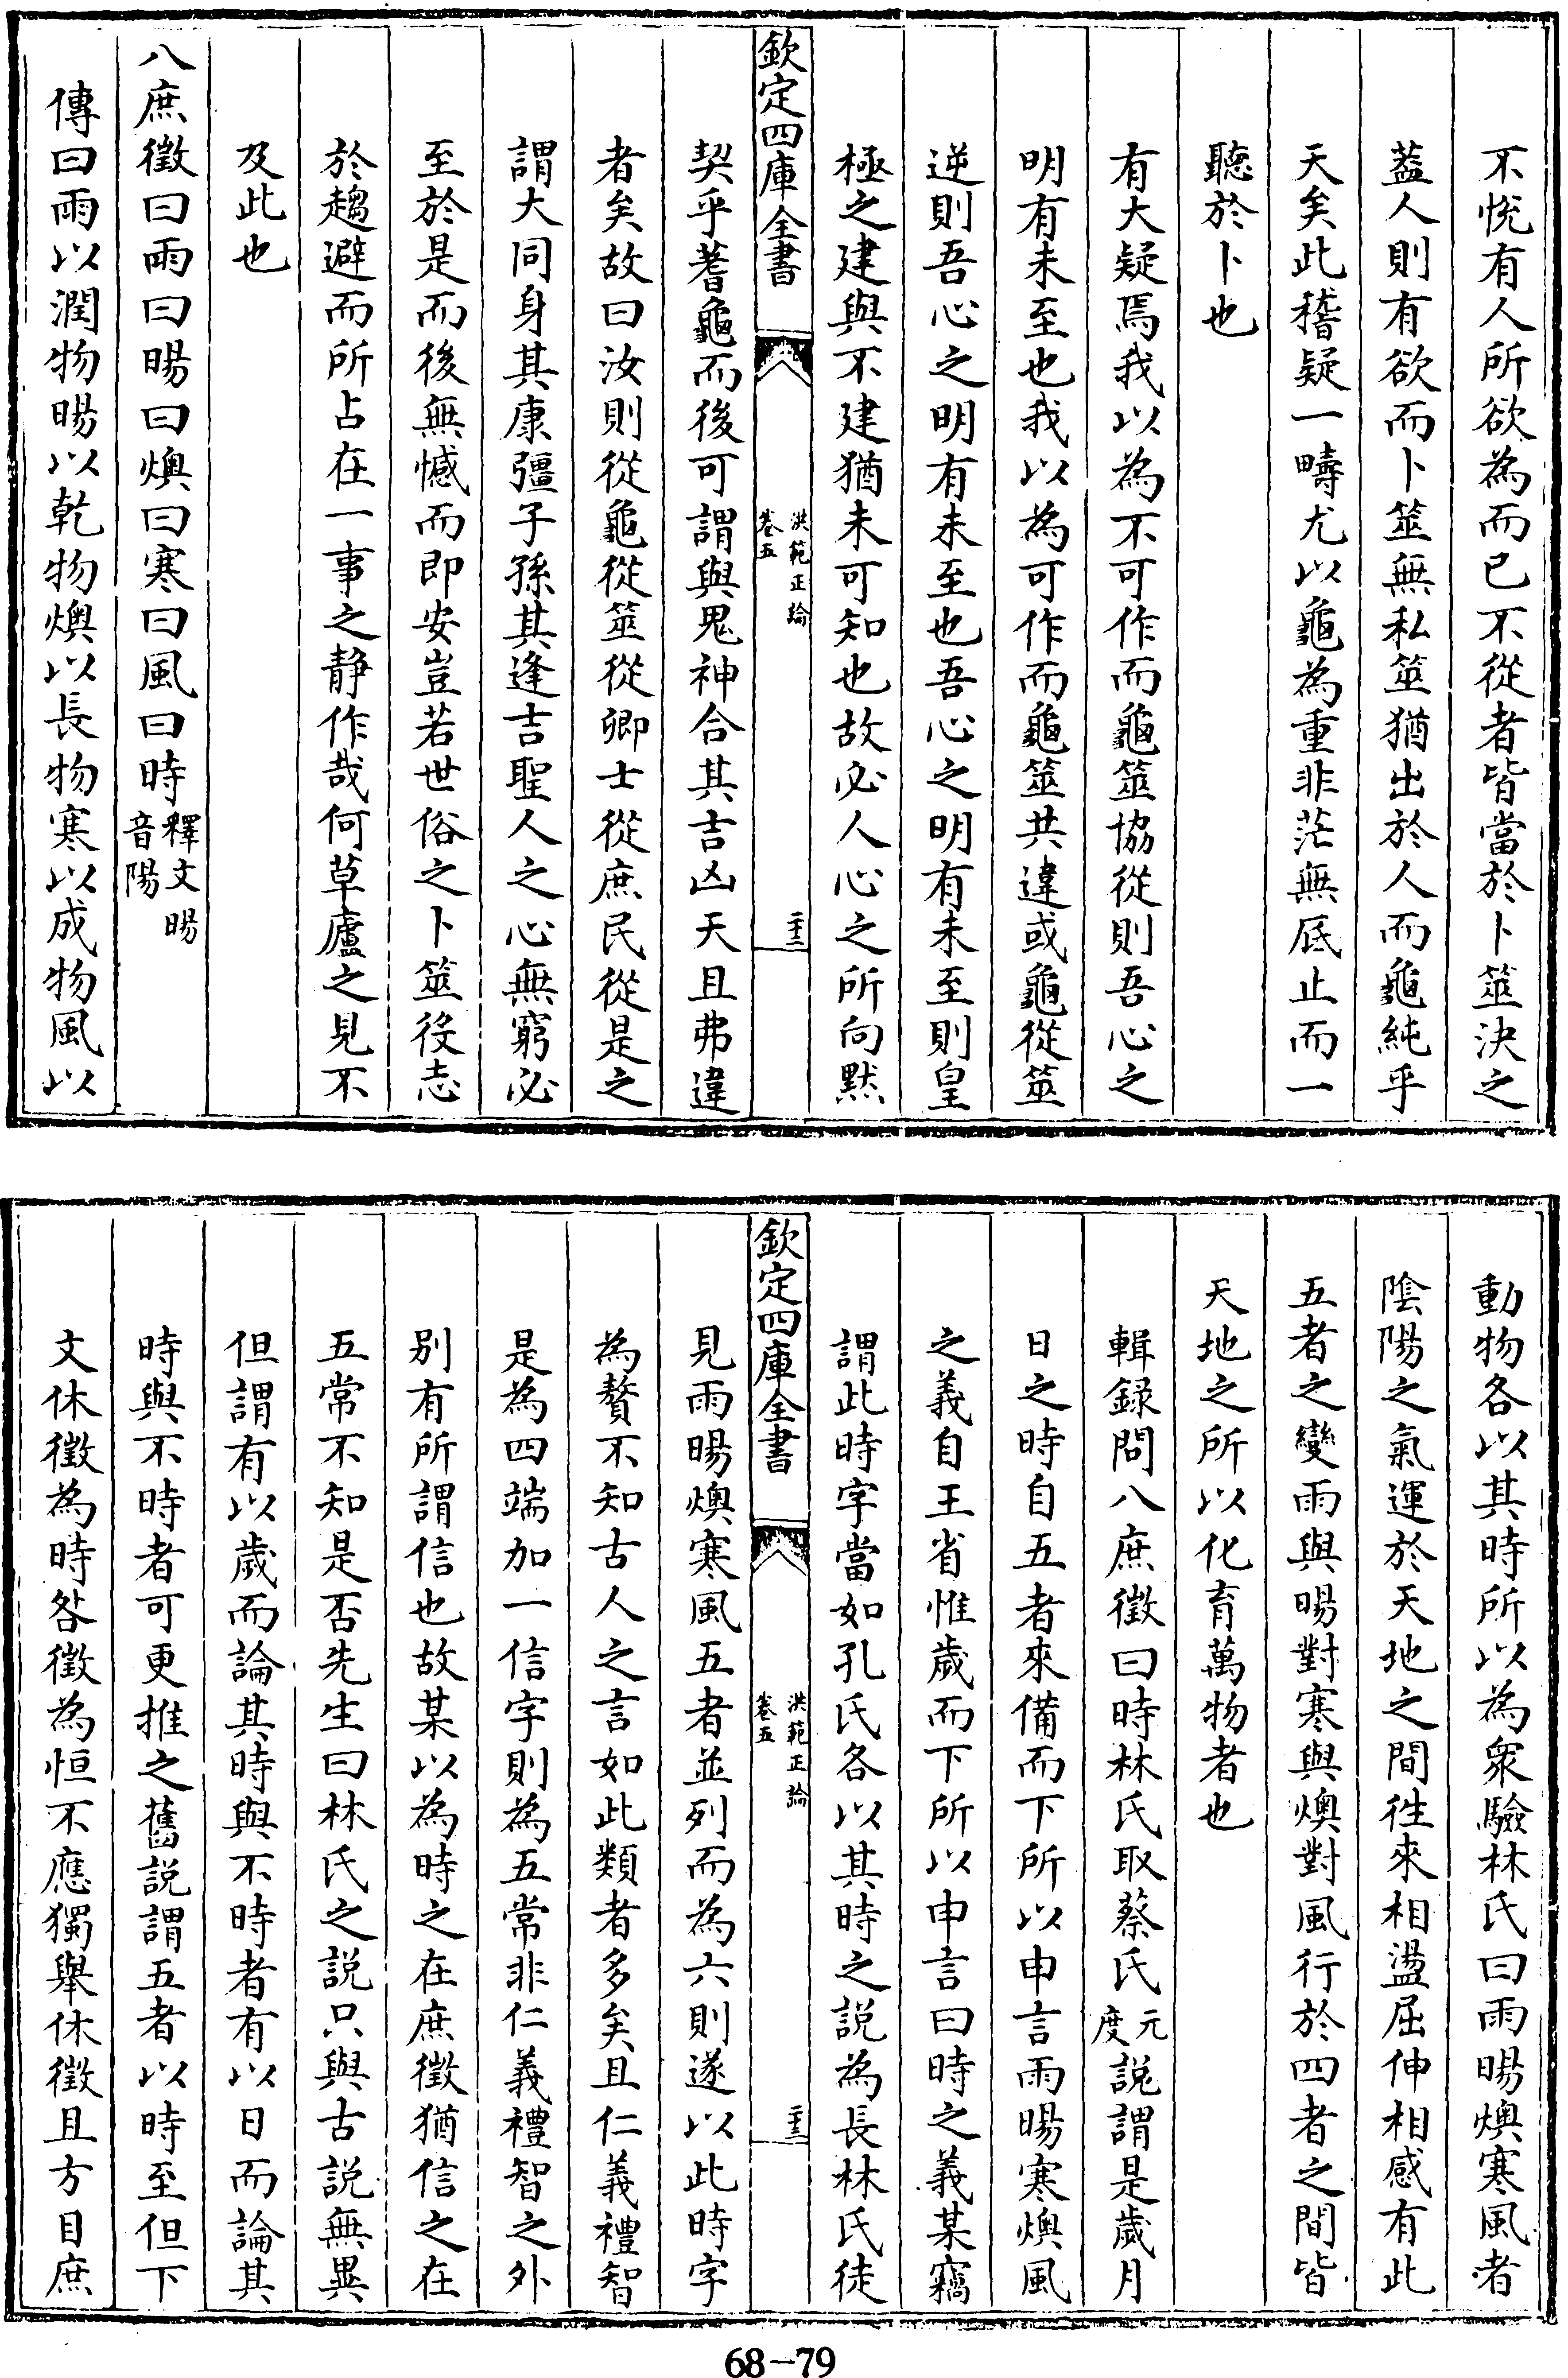 不悅有人所欲為而已不從者皆當於卜筮決之
葢人則有欲而卜筮無私筮猶出於人而龜純乎
天矣此稽疑一疇尤以龜為重非茫無底止而一
聽於卜也
有大疑焉我以為不可作而龜筮協從則吾心之
明有未至也我以為可作而龜筮共違或龜從筮
逆則吾心之明有未至也吾心之明有未至則皇
極之建與不建猶未可知也故必人心之所向默
欽定四庫全書
洪範正論
卷五
二十三
契乎蓍龜而後可謂與鬼神合其吉凶天且弗違
者矣故曰汝則從龜從筮從卿士從庶民從是之
謂大同身其康彊子孫其逢吉聖人之心無窮必
至於是而後無憾而即安豈若世俗之卜筮役志
於趨避而所占在一事之静作哉何草廬之見不
及此也
八庶徵曰雨曰暘曰燠曰寒曰風曰時釋文暘
音陽
傳曰雨以潤物暘以乾物燠以長物寒以成物風以
動物各以其時所以為衆驗林氏曰雨暘燠寒風者
陰陽之氣運於天地之間徃來相盪屈伸相感有此
五者之變雨與暘對寒與燠對風行於四者之間皆
天地之所以化育萬物者也
輯録問八庶徵曰時林氏取蔡氏元度説謂是歲月
日之時自五者來備而下所以申言雨暘寒燠風
之義自王省惟歲而下所以申言曰時之義某竊
謂此時字當如孔氏各以其時之説為長林氏徒
欽定四庫全書
洪範正論
卷五
二十三
見雨暘燠寒風五者並列而為六則遂以此時字
為贅不知古人之言如此類者多矣且仁義禮智
是為四端加一信字則為五常非仁義禮智之外
别有所謂信也故某以為時之在庶徵猶信之在
五常不知是否先生曰林氏之説只與古説無異
但謂有以歲而論其時與不時者有以日而論其
時與不時者可更推之舊説謂五者以時至但下
文休徵為時咎徵為恒不應獨舉休徵且方目庶
68-79